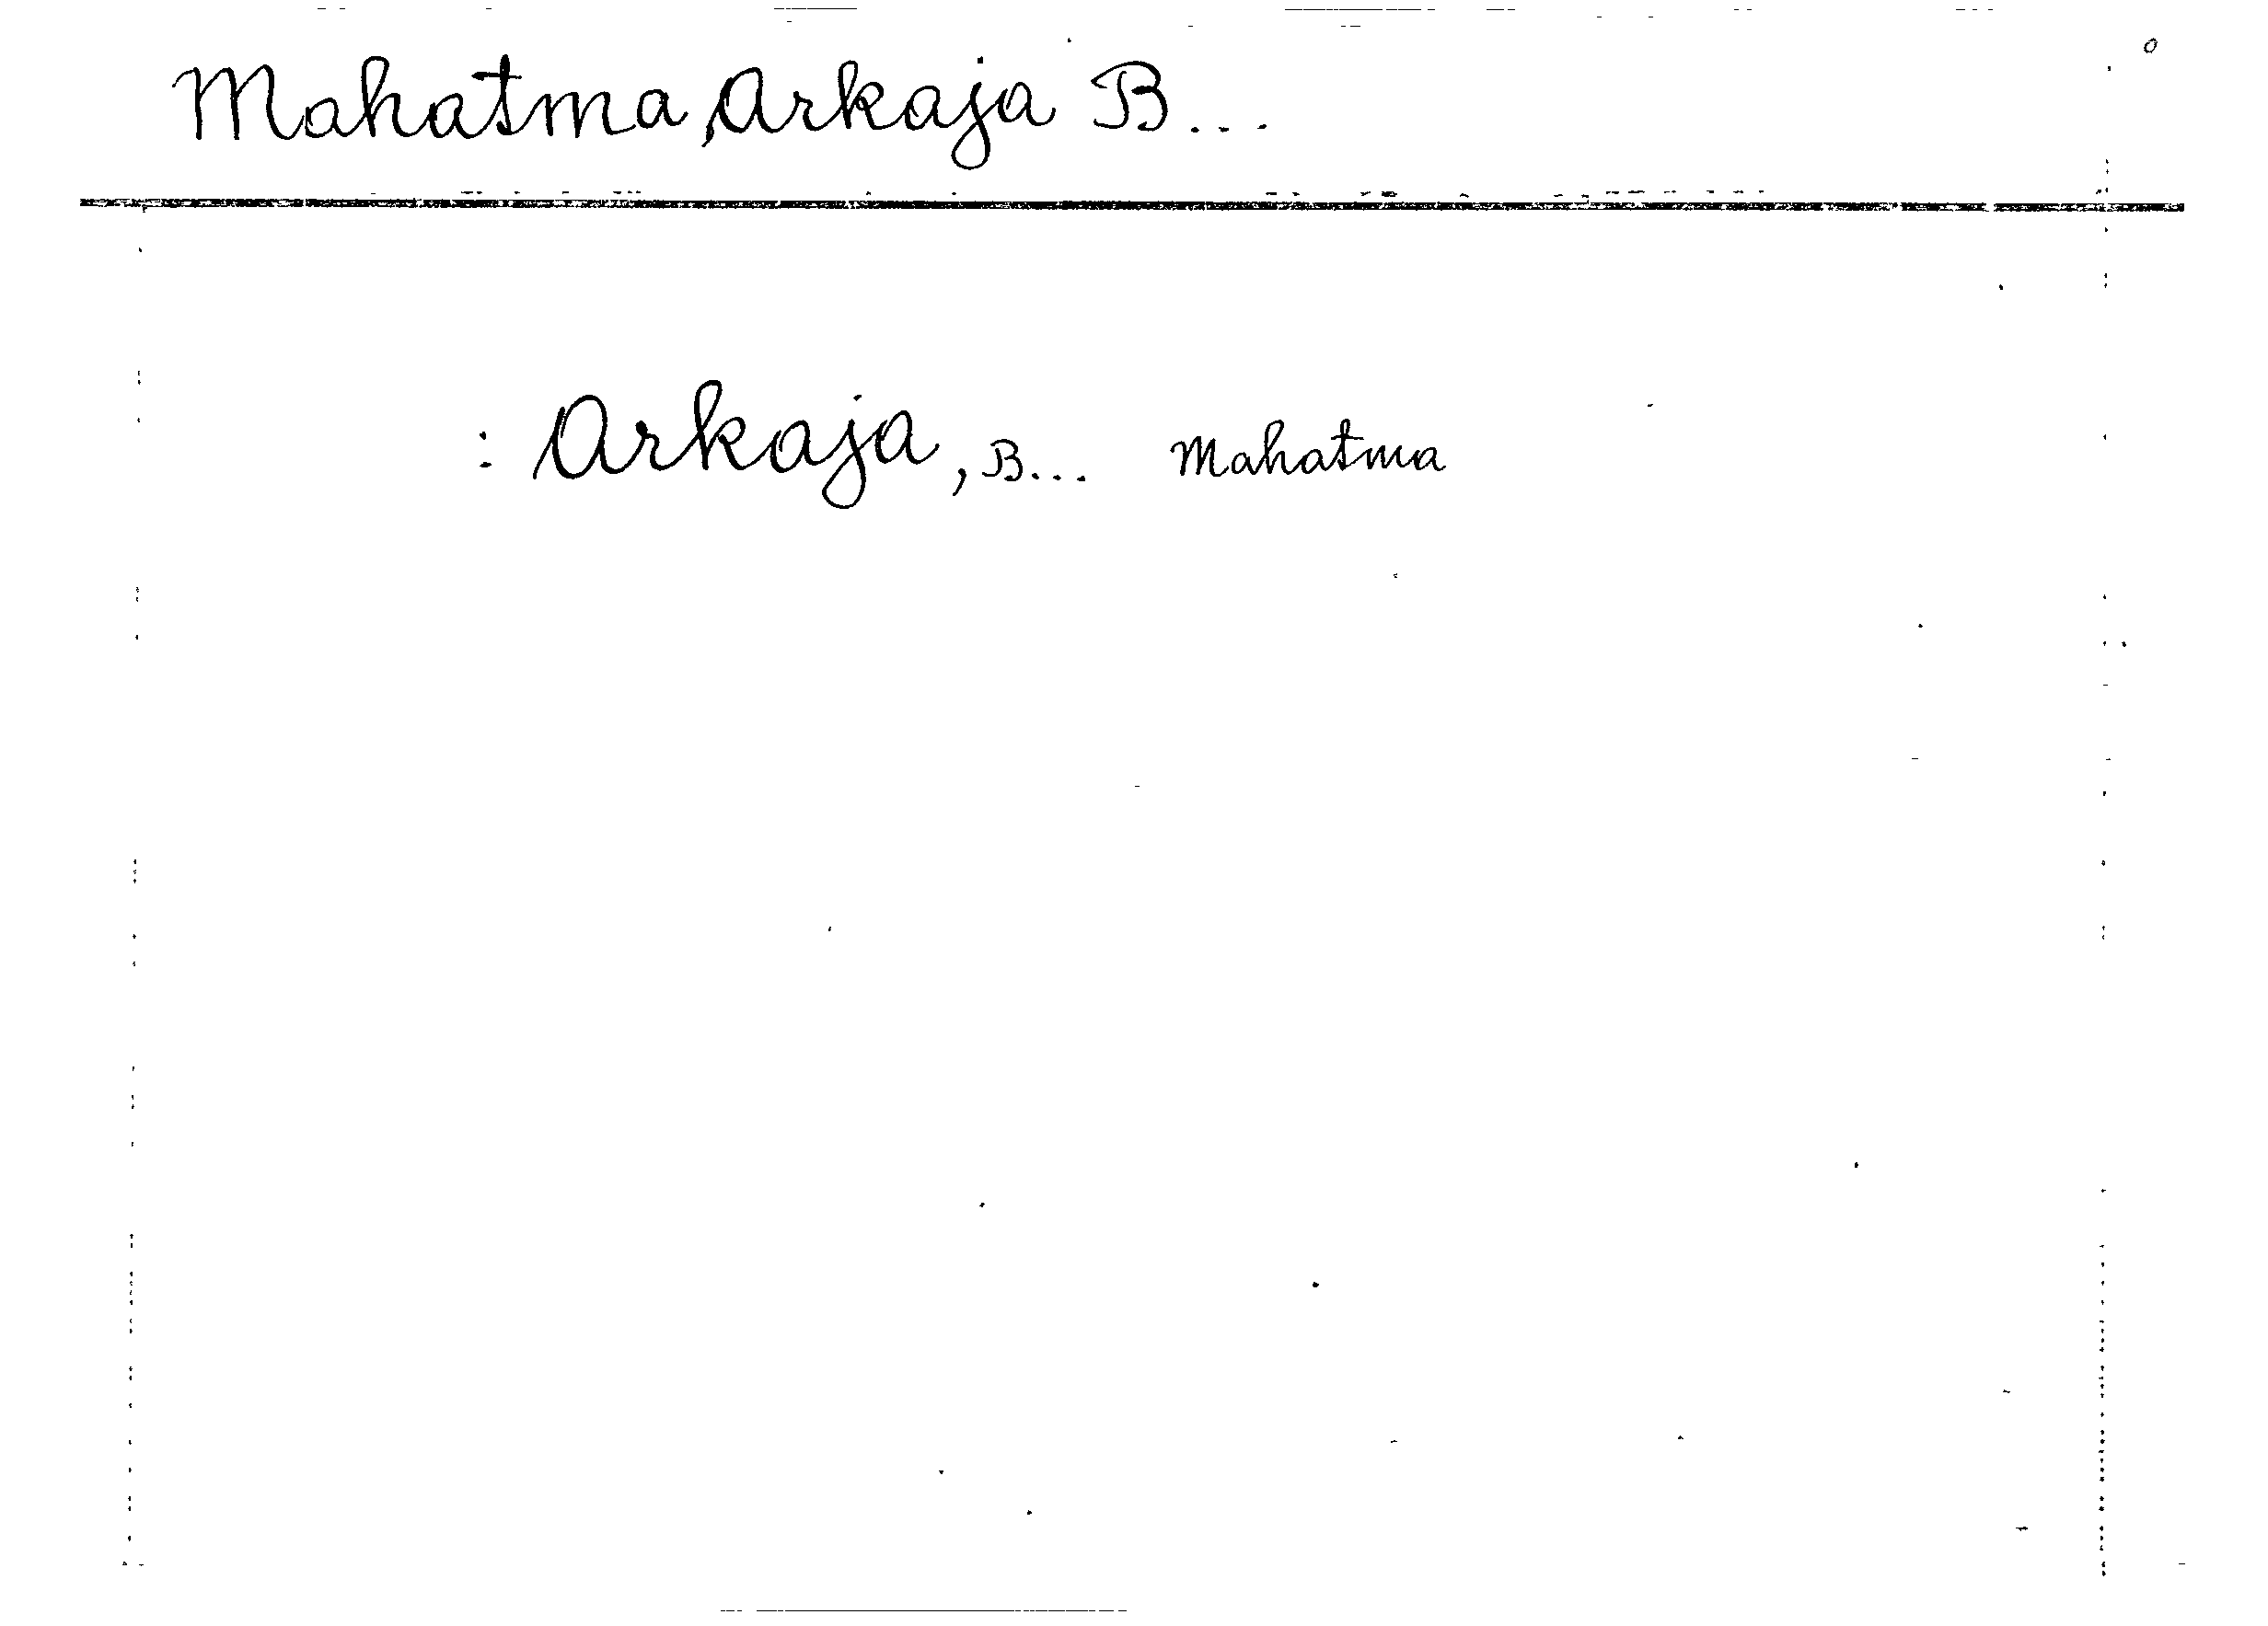 Mahatma, Arkaja B...
: Arkaja, B... Mahatma